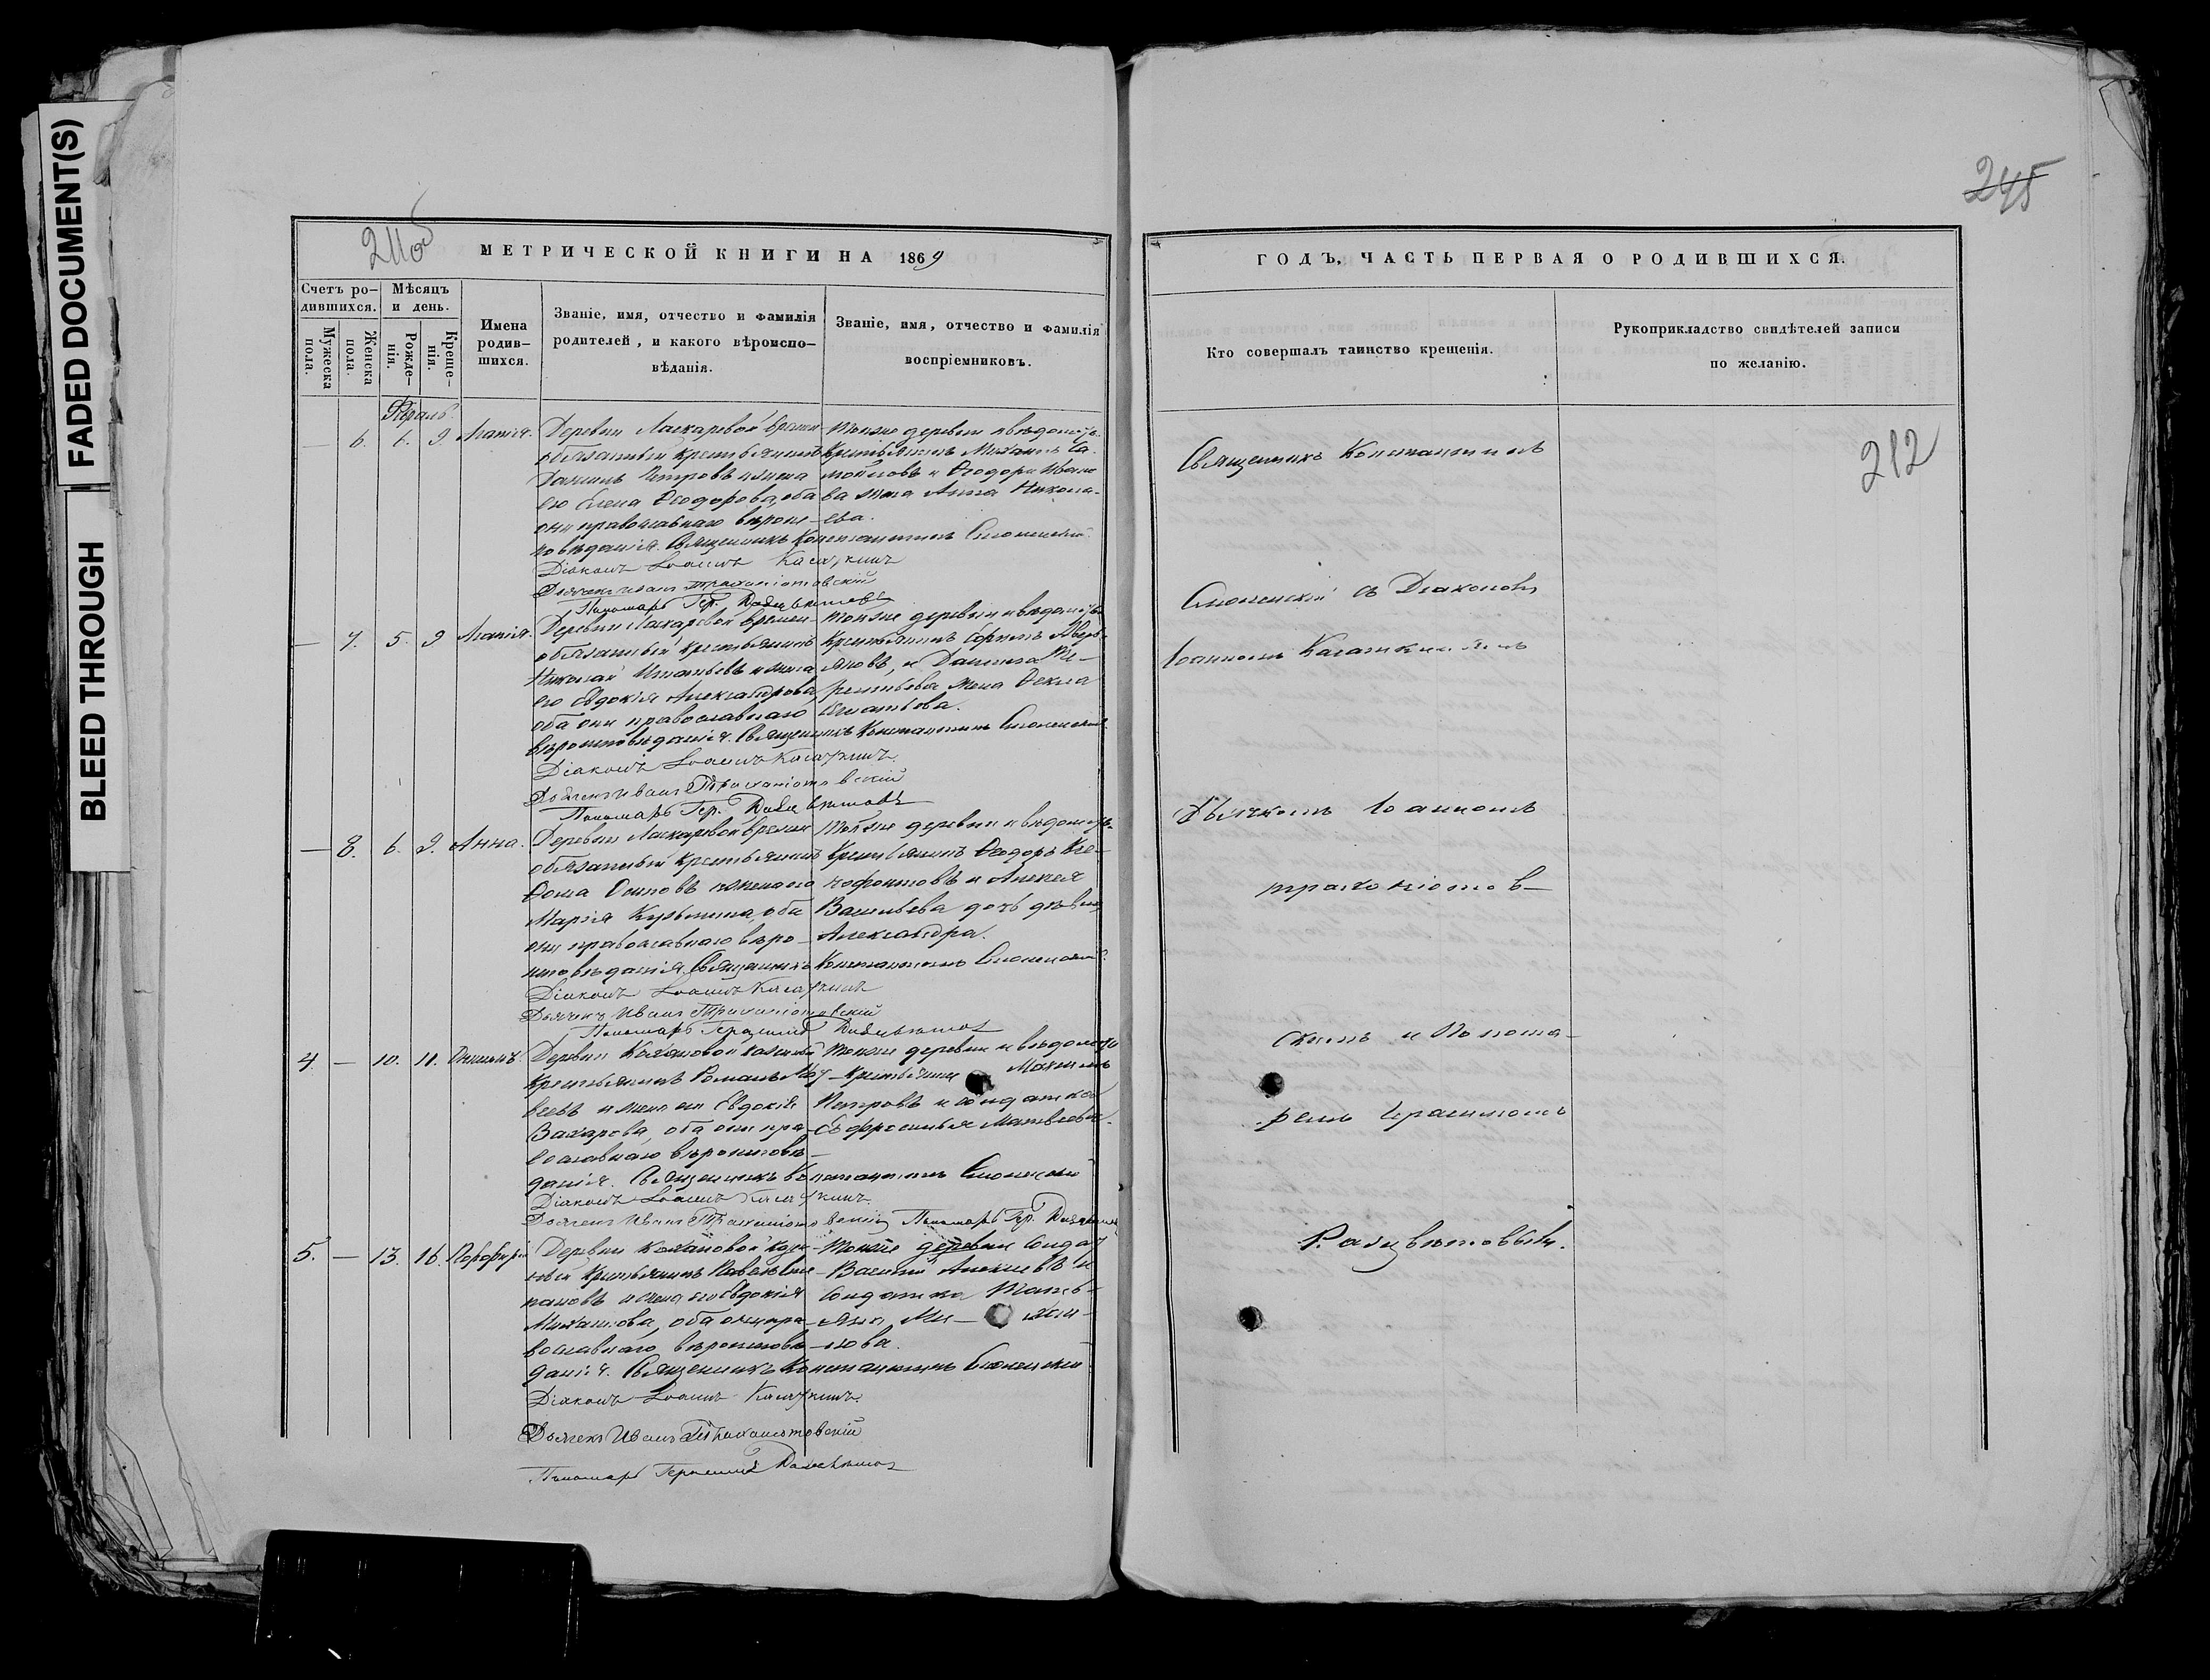 FADED DOCUMENT(S)
BLEED THROUGH
211об
МЕТРИЧЕСКОЙ КНИГИ НА 1869
Счетъ ро-
дившихся.
Мѣсяцъ
и день.
Мужеска
пола.
Женска
пола.
Рожде-
нія.
Креще-
нія.
Имена
родив-
шихся.
Званіе, имя, отчество и фамилія
родителей, и какого вѣроиспо-
вѣданія.
Званіе, имя, отчество и фамилія
воспріемниковъ.
— 6. 6. 9. Агаѳія.
Деревни Ласкаревой времен-
обязанный крестьянинъ
Петровъ и жена
его Елена Ѳеодорова, оба
они православнаго вѣроис-
повѣданія. Священникъ Константинъ Смоленскій
Діаконъ Іоаннъ Касаткинъ
Дьячекъ Иванъ Траханіотовскій
Пономарь Гер. Разцвѣтовъ
Тойже деревни и вѣдомства
крестьянинъ Михаилъ Са-
мойловъ и Ѳеодора Ивано
ва жена Анна Никола-
ева.
— 7. 5. 9 Агаѳія.
Деревни Ласкаревой времен-
обязанный крестьянинъ
Николай Игнатьевъ и жена
его Евдокія Александрова,
оба они православнаго
вѣроисповѣданія. Священникъ Константинъ Смоленскій
Діаконъ Іоаннъ Касаткинъ
Дьячекъ Иванъ Траханіотовскій
Пономарь Гер. Разцвѣтовъ
Тойже деревни и вѣдомства
крестьянинъ Ефимъ Аверь-
яновъ, и Даниила Те-
рентьева жена Ѳекла
Игнатьева.
— 8. 6. 9. Анна.
Деревни Ласкаревой времен
обязанный крестьянинъ
Ѳома Осиповъ и жена его
Марѳа Кузьмина, оба
они православнаго вѣро-
исповѣданія. Священникъ Константинъ Смоленскій
Діаконъ Іоаннъ Касаткинъ
Дьячекъ Иванъ Траханіотовскій
Пономарь Герасимъ Разцвѣтовъ
Тойже деревни и вѣдомства
крестьянинъ Ѳеодоръ Ксе-
нофонтовъ и Алексея
Васильева дочь дѣвица
Александра.
4. — 10. 11.
Деревни Кахановой казенный
крестьянинъ Романъ Мат-
веевъ и жена его Евдокія
Захарова, оба они пра-
вославнаго вѣроисповѣ-
данія. Священникъ Константинъ Смоленскій
Діаконъ Іоаннъ Касаткинъ
Дьячекъ Иванъ Траханіотовскій Пономарь Гер. Разцвѣтовъ
Тойже деревни и вѣдомства
крестьянинъ Максимъ
Петровъ и солдатка
Евфросинья Матвѣева.
5. — 13. 16. Порфирій
Деревни Кахановой казе-
нный крестьянинъ Павелъ Сте-
пановъ и жена его Евдокія
Михайлова, оба они пра-
вославнаго вѣроисповѣ-
данія. Священникъ Константинъ Смоленскій
Діаконъ Іоаннъ Касаткинъ
Дьячекъ Иванъ Траханіотовскій
Пономарь Герасимъ Разцвѣтовъ
Тойже деревни солдатъ
Василій Алексѣевъ и
солдатка Тать-
яна Ми- хай-
лова.
245
ГОДЪ, ЧАСТЬ ПЕРВАЯ О РОДИВШИХСЯ.
Кто совершалъ таинство крещенія.
Рукоприкладство свидѣтелей записи
по желанію.
212
Священникъ Константинъ
Смоленскій съ Діакономъ
Іоанномъ Касаткинымъ
Дьячкомъ Іоанномъ
Траханіотов-
скимъ и Понома-
ремъ Герасимомъ
Разцвѣтовымъ.